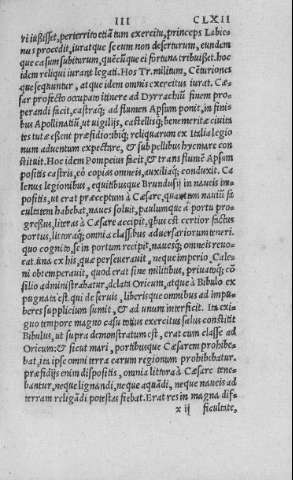 III CLXII
ri iussisset, perterrito etiã tum exercitu, princeps Labie
nus procedit, iurat que se eum non deserturum, eundem
que casum subiturum, quẽcũque ei fortuna tribuisset. hoc
idem reliqui iurant legati. Hos Tr. militum, Cẽturiones
que sequuntur, atque idem omnis exercitus iurat. Cæ
sar præoccupato itinere ad Dyrrachiũ finem pro
perandi facit, castraq; ad flumen Apsum ponit, in finib
bus Apolliniatiũ, ut uigilijs, castellisq; benemeritæ ciuita
tes tutæ essent præsidio: ibiq; reliquarum ex Italia legio
num aduentum expectare, & sub pellibus hyemare con
stituit. Hoc idem Pompeius facit, & trans flumẽ Apsum
positis castris, eò copias omneis, auxiliaq; conduxit. Ca
lenus legionibus, equitibusque Brundusij in naueis im
positis, ut erat præceptum à Cæsare, quantum nauiũ fa
cultatem habebat, naues soluit, paulumque à portu pro
gressus, litteras à Cæsare accepit, quibus est certior factus
portus, littoraq; omnia classibus aduersariorum teneri.
quo cognito, se in portum recipit, naueisq; omneis reuo
cat. una ex his, quæ perseuerauit, neque imperio Cale
ni obtemperauit, quod erat sine militibus, priuatoq; cõ
silio administrabatur, delata Oricum, atque à Bibulo ex
pugnata est. qui de seruis, liberisque omnibus ad impu
beres supplicium sumit, & ad unum interficit. Ita exi
guo tempore magno casu totius exercitus salus constitit
Bibulus, ut supra demonstratum est, erat cum classe ad
Oricum: & sicut mari, portibusque Cæsarem prohibe
bat, ita ipse omni terra earum regionum prohibebatur.
præsidijs enim dispositis, omnia littora à Cæsare tene
bantur, neque lignandi, neque aquãdi, neque naueis ad
terram religãdi potestas fiebat. Erat res in magna dif=
x ij ficultate,